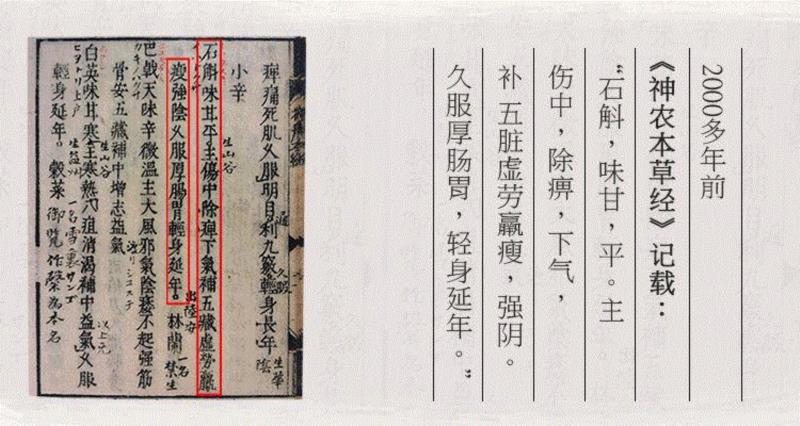 2000多年前
《神农本草经》记载：
“石斛，味甘，平。主
伤中，除痹，下气，
补 五脏虚劳羸瘦，强阴。
久服厚肠胃，轻身延年。”
痺痛死肌久服明目利九竅輕身長年
小辛 生山谷
石斛味甘平主傷中除痺下氣補五藏虛勞羸
瘦強陰久服厚腸胃輕身延年。林蘭 一名禁生
巴戟天味辛微溫主大風邪氣陰痿不起强筋
骨安五藏補中增志益氣 生山谷
白英味甘寒主寒熱八疽消渴補中益氣久服
輕身延年。穀菜